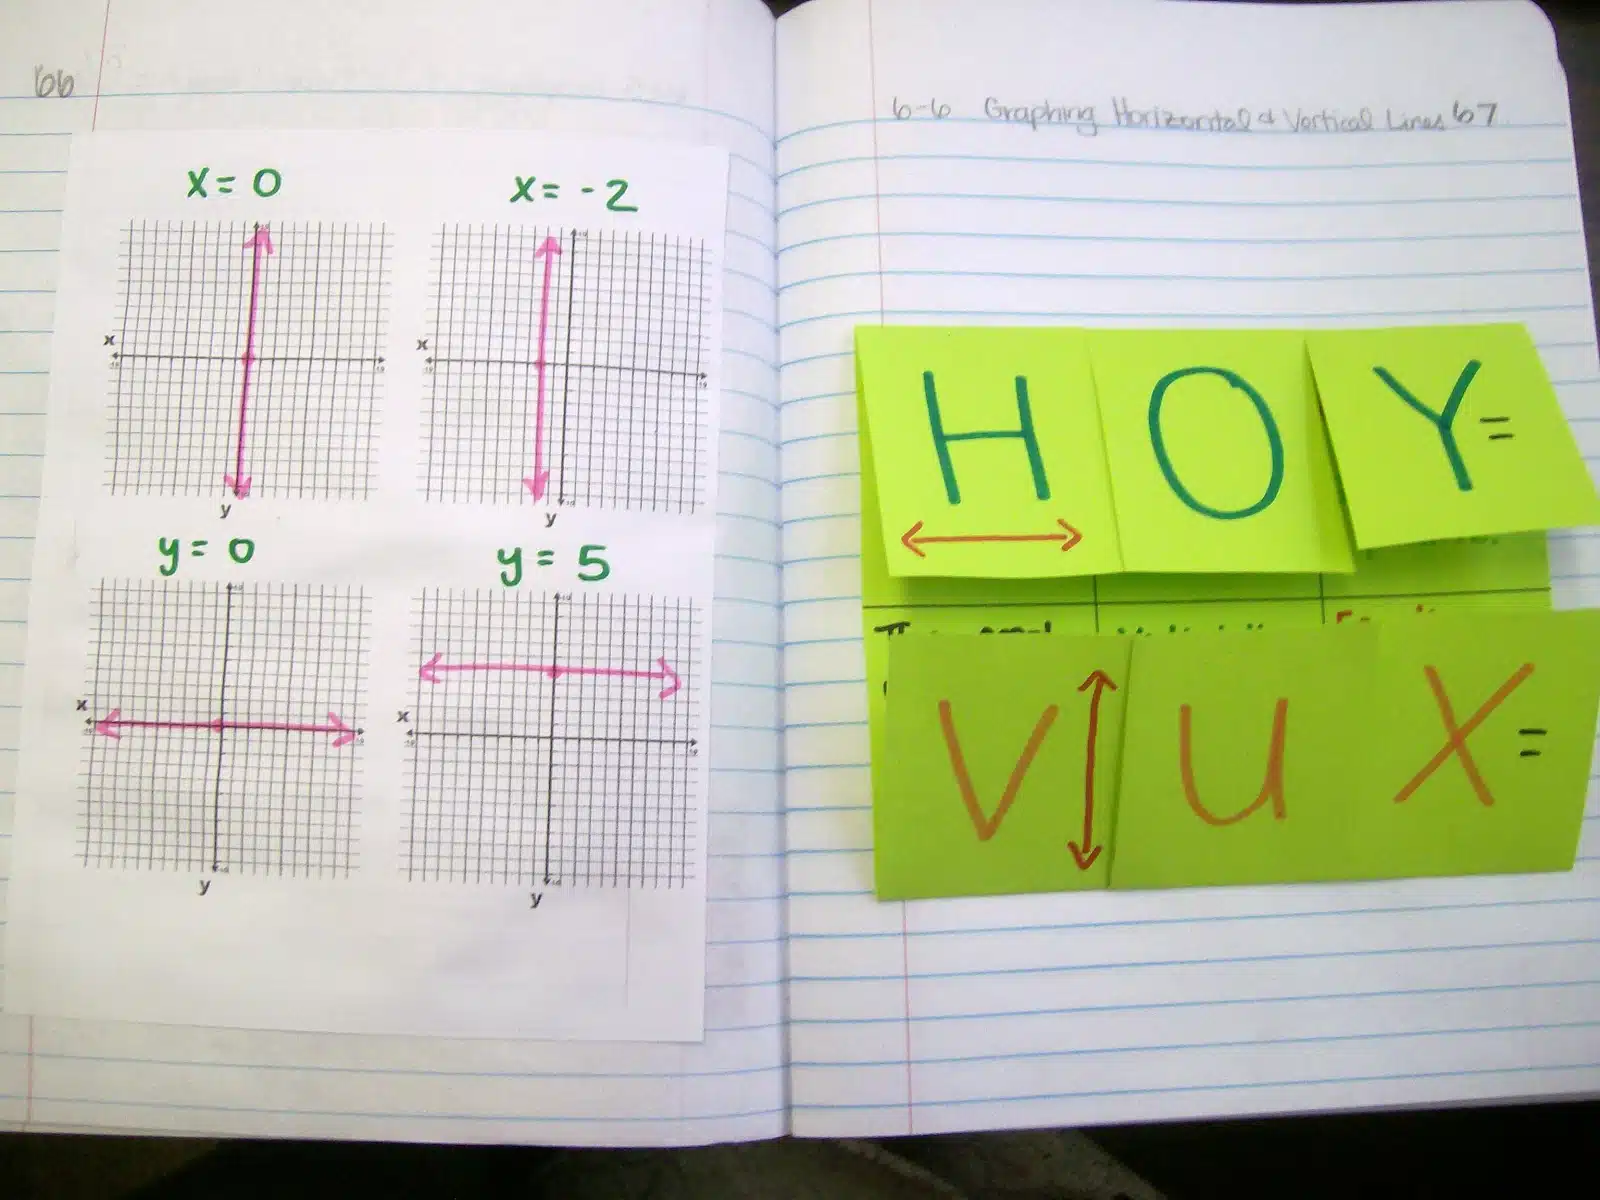 66
x = 0
x = -2
x
y
x
y
y = 0
y = 5
x
y
x
y
6-6 Graphing Horizontal & Vertical Lines 67
H O Y=
V U X=